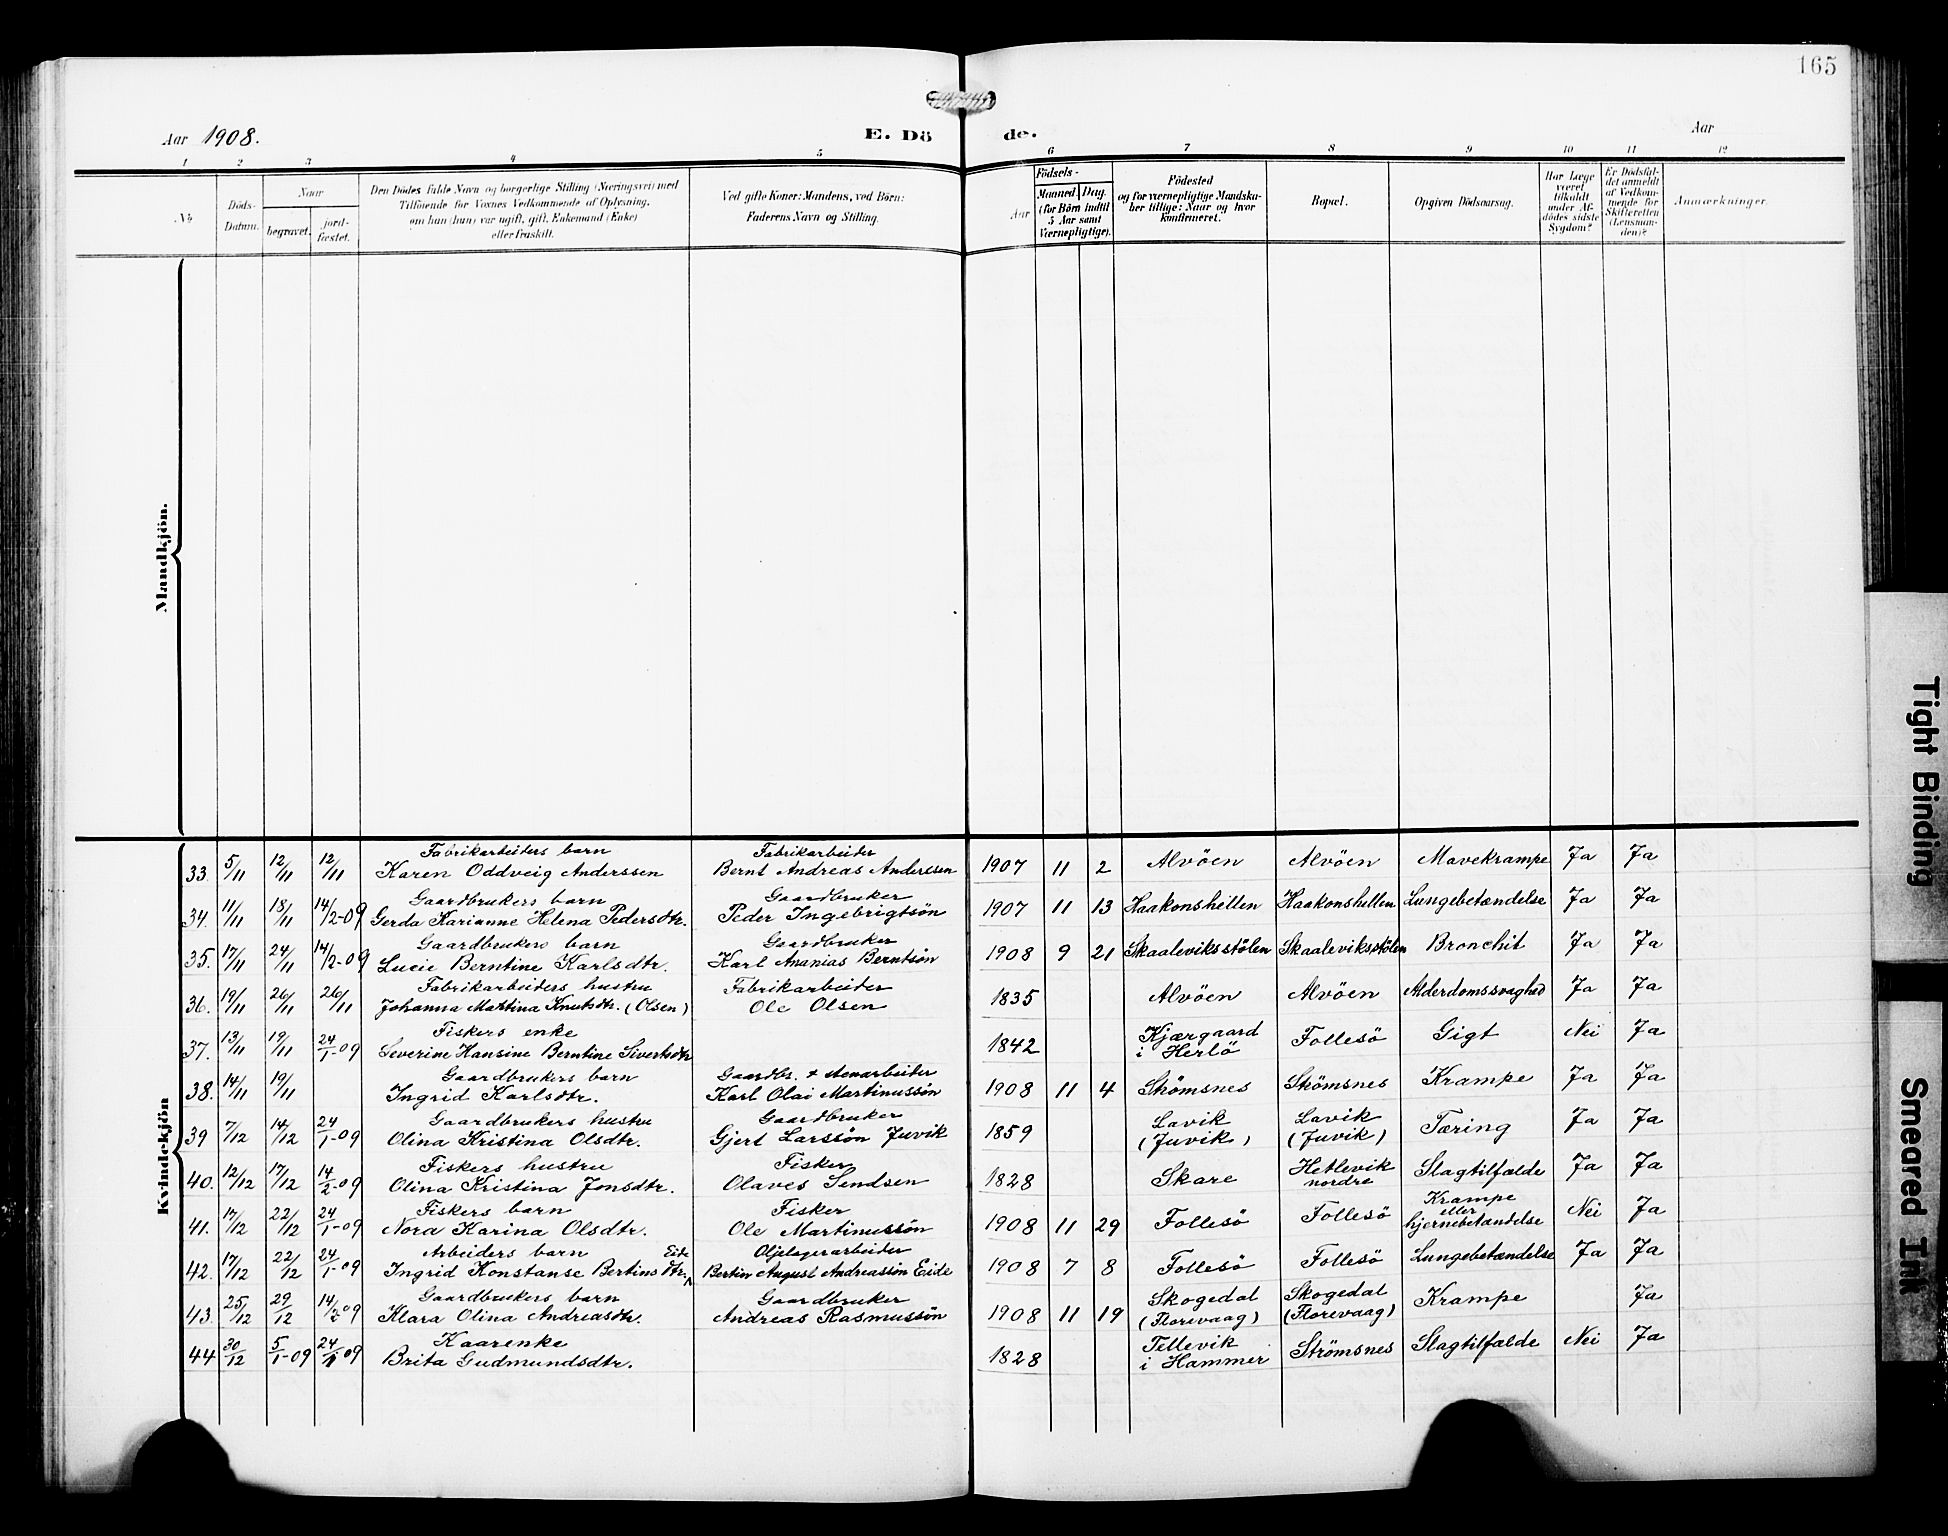 165
Aar 1908.
E. Dö de.
Aar
1 2 3 4 5 6 7 8 9 10 11 12
№
Döds-
Datum.
Naar
begravet.
jord-
fæstet.
Den Dödes fulde Navn og borgerlige Stilling (Næringsvei) med
Tilföiende for Voxnes Vedkommende af Oplysning,
om han (hun) var ugift, gift, Enkemand (Enke)
eller fraskilt.
Ved gifte Koner: Mandens, ved Börn:
Faderens Navn og Stilling.
Födsels-
Aar
Maaned. Dag.
(for Börn indtil
5 Aar samt
Værnepligtige).
Födested
og for værnepligtige Mandska-
ber tillige: Naar og hvor
konfirmeret.
Bopæl.
Opgiven Dödsaarsag.
Har Læge
været
tilkaldt
under Af-
dödes sidste
Sygdom?
Er Dödsfal-
det anmeldt
af Vedkom-
mende for
Skifteretten
(Lensman-
den)?
Anmærkninger.
Mandkjön.
Kvindekjön
33. 5/11 12/11 12/11 Fabrikarbeiders barn Karen Oddveig Anderssen Fabrikarbeider Bernt Andreas Anderssen 1907 11 2 Alvöen Alvöen Mavekrampe Ja Ja
34. 11/11 18/11 14/2-09 Gaardbrukers barn Gerda Karianne Helena Pedersdtr. Gaardbruker Peder Ingebrigtsön 1907 11 13 Haakonshellen Haakonshellen Lungebetændelse Ja Ja
35. 17/11 24/11 14/2-09 Gaardbrukers barn Lucie Berntine Karlsdtr. Gaardbruker Karl Ananias Berntsön 1908 9 21 Skaaleviksstölen Skaaleviksstölen Bronchit Ja Ja
36. 19/11 26/11 26/11 Fabrikarbeiders hustru Johanna Martina Knutsdtr. (Olsen) Fabrikarbeider Ole Olsen 1835 Alvöen Alvöen Alderdomssvaghed Ja Ja
37. 13/11 19/11 24/1-09 Fiskers enke Severine Hansine Berntine Sivertsdtr 1842 Kjærgaard i Herlö Follesö Gigt Nei Ja
38. 14/11 19/11 Gaardbrukers barn Ingrid Karlsdtr. Gaardbr. + stenarbeider Karl Olai Martinussön 1908 11 4 Skömsnes Skömsnes Krampe Ja Ja
39 7/12 14/12 24/1-09 Gaardbrukers hustru Olina Kristina Olsdtr. Gaardbruker Gjert Larssön Juvik 1859 Lavik (Juvik) Lavik (Juvik) Tæring Ja Ja
40. 12/12 17/12 14/2-09 Fiskers hustru Olina Kristina Jonsdtr. Fisker Olaves Sendsen 1828 Skare Hetlevik nordre Slagtilfælde Ja Ja
41. 17/12 22/12 24/1-09 Fiskers barn Nora Karina Olsdtr. Fisker Ole Martinussön 1908 11 29 Follesö Follesö Krampe eller hjernebetændelse Nei Ja
42. 17/12 22/12 24/1-09 Arbeiders barn Ingrid Konstanse Bertinsdtr. Eide Oljelagerarbeider Bertin August Andreassön Eide 1908 7 8 Follesö Follesö Lungebetændelse Ja Ja
43. 25/12 29/12 14/2 09 Gaardbrukers barn Klara Olina Andreasdtr. Gaardbruker Andreas Rasmussön 1908 11 19 Skogedal (Florevaag) Skogedal (Florevaag) Krampe Ja
44 30/12 5/1-09 24/1 09 Kaarenke Brita Gudmundsdtr. 1828 Tellevik i Hammer Strömsnes Slagtilfælde Nei Ja
Tight Binding
Smeared Ink